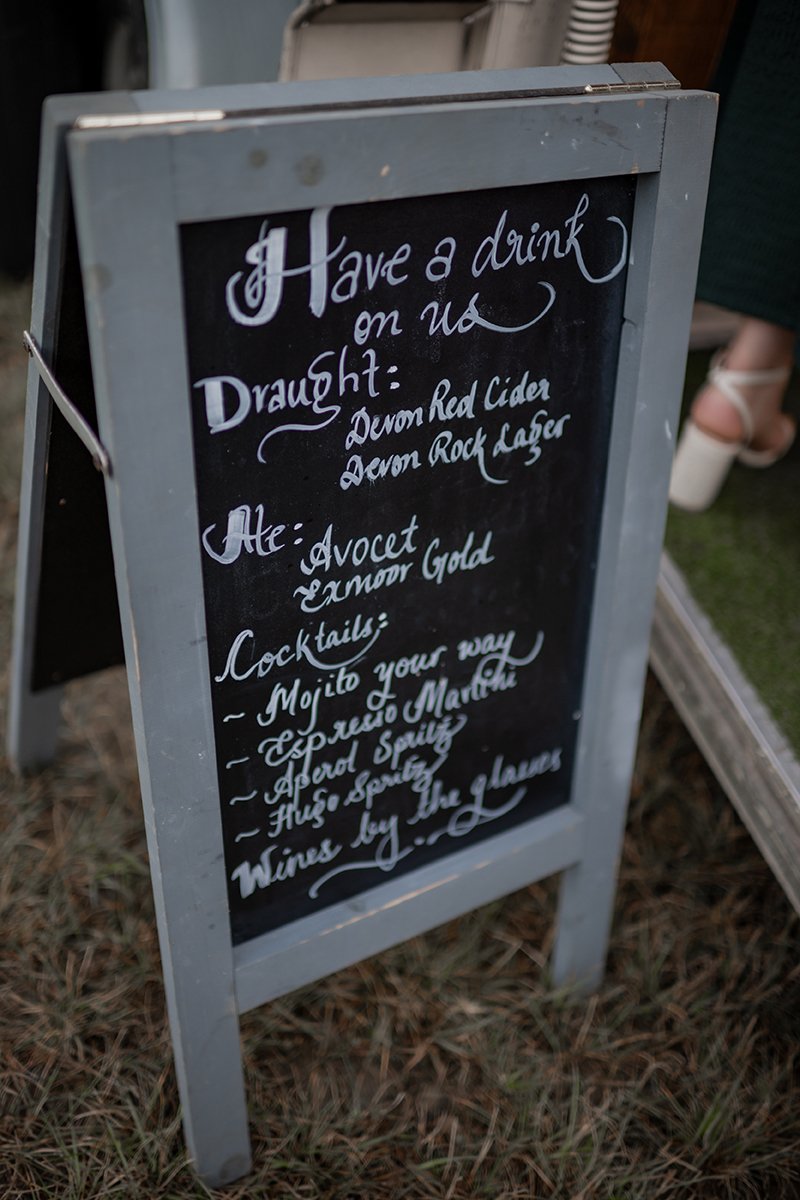 Have a drink
on us
Draught:
Devon Red Cider
Devon Rock Lager
Ale:
Avocet
Exmoor Gold
Cocktails:
~ Mojito your way
~ Espresso Martini
~ Aperol Spritz
~ Hugo Spritz
Wines by the glasses